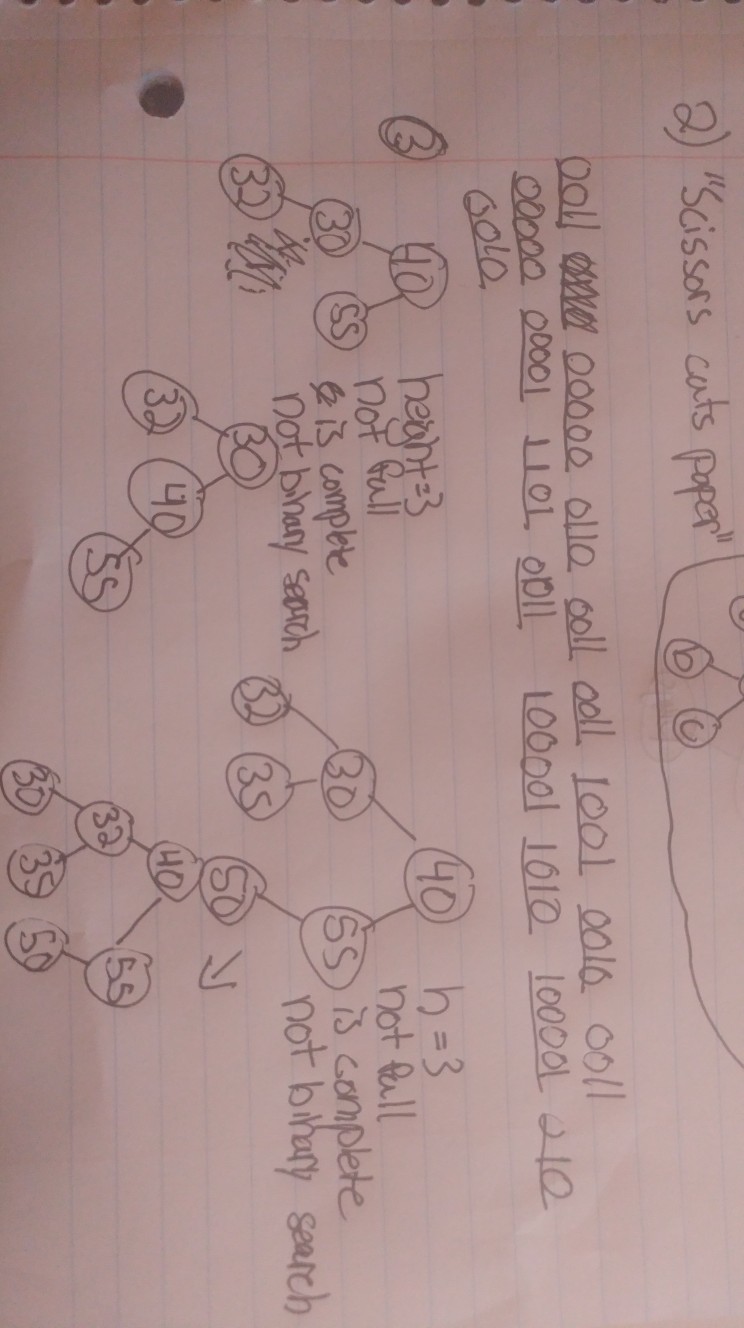 2) "Scissors cuts paper"
b c
0011 00000 0110 0011 0011 1001 0010 0011
00000 00001 1101 0011 10001 1010 10001 010
0010
3
40
30 55
32
height=3
not full
is complete
not binary search
30
32 40
55
40
30 55
32 35 50
h=3
not full
is complete
not binary search
40
32 55
30 35 50